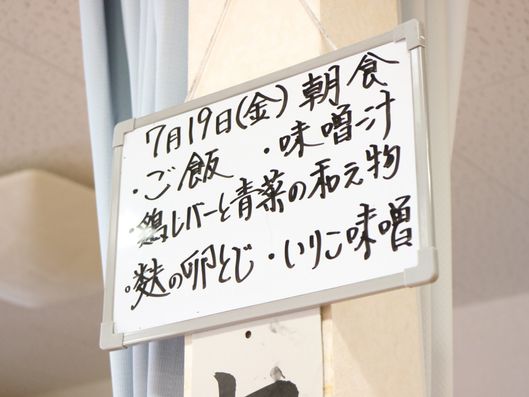 7月19日(金) 朝食
・ご飯 ・味噌汁
・鶏レバーと青菜の和え物
・麩の卵とじ ・いりこ味噌